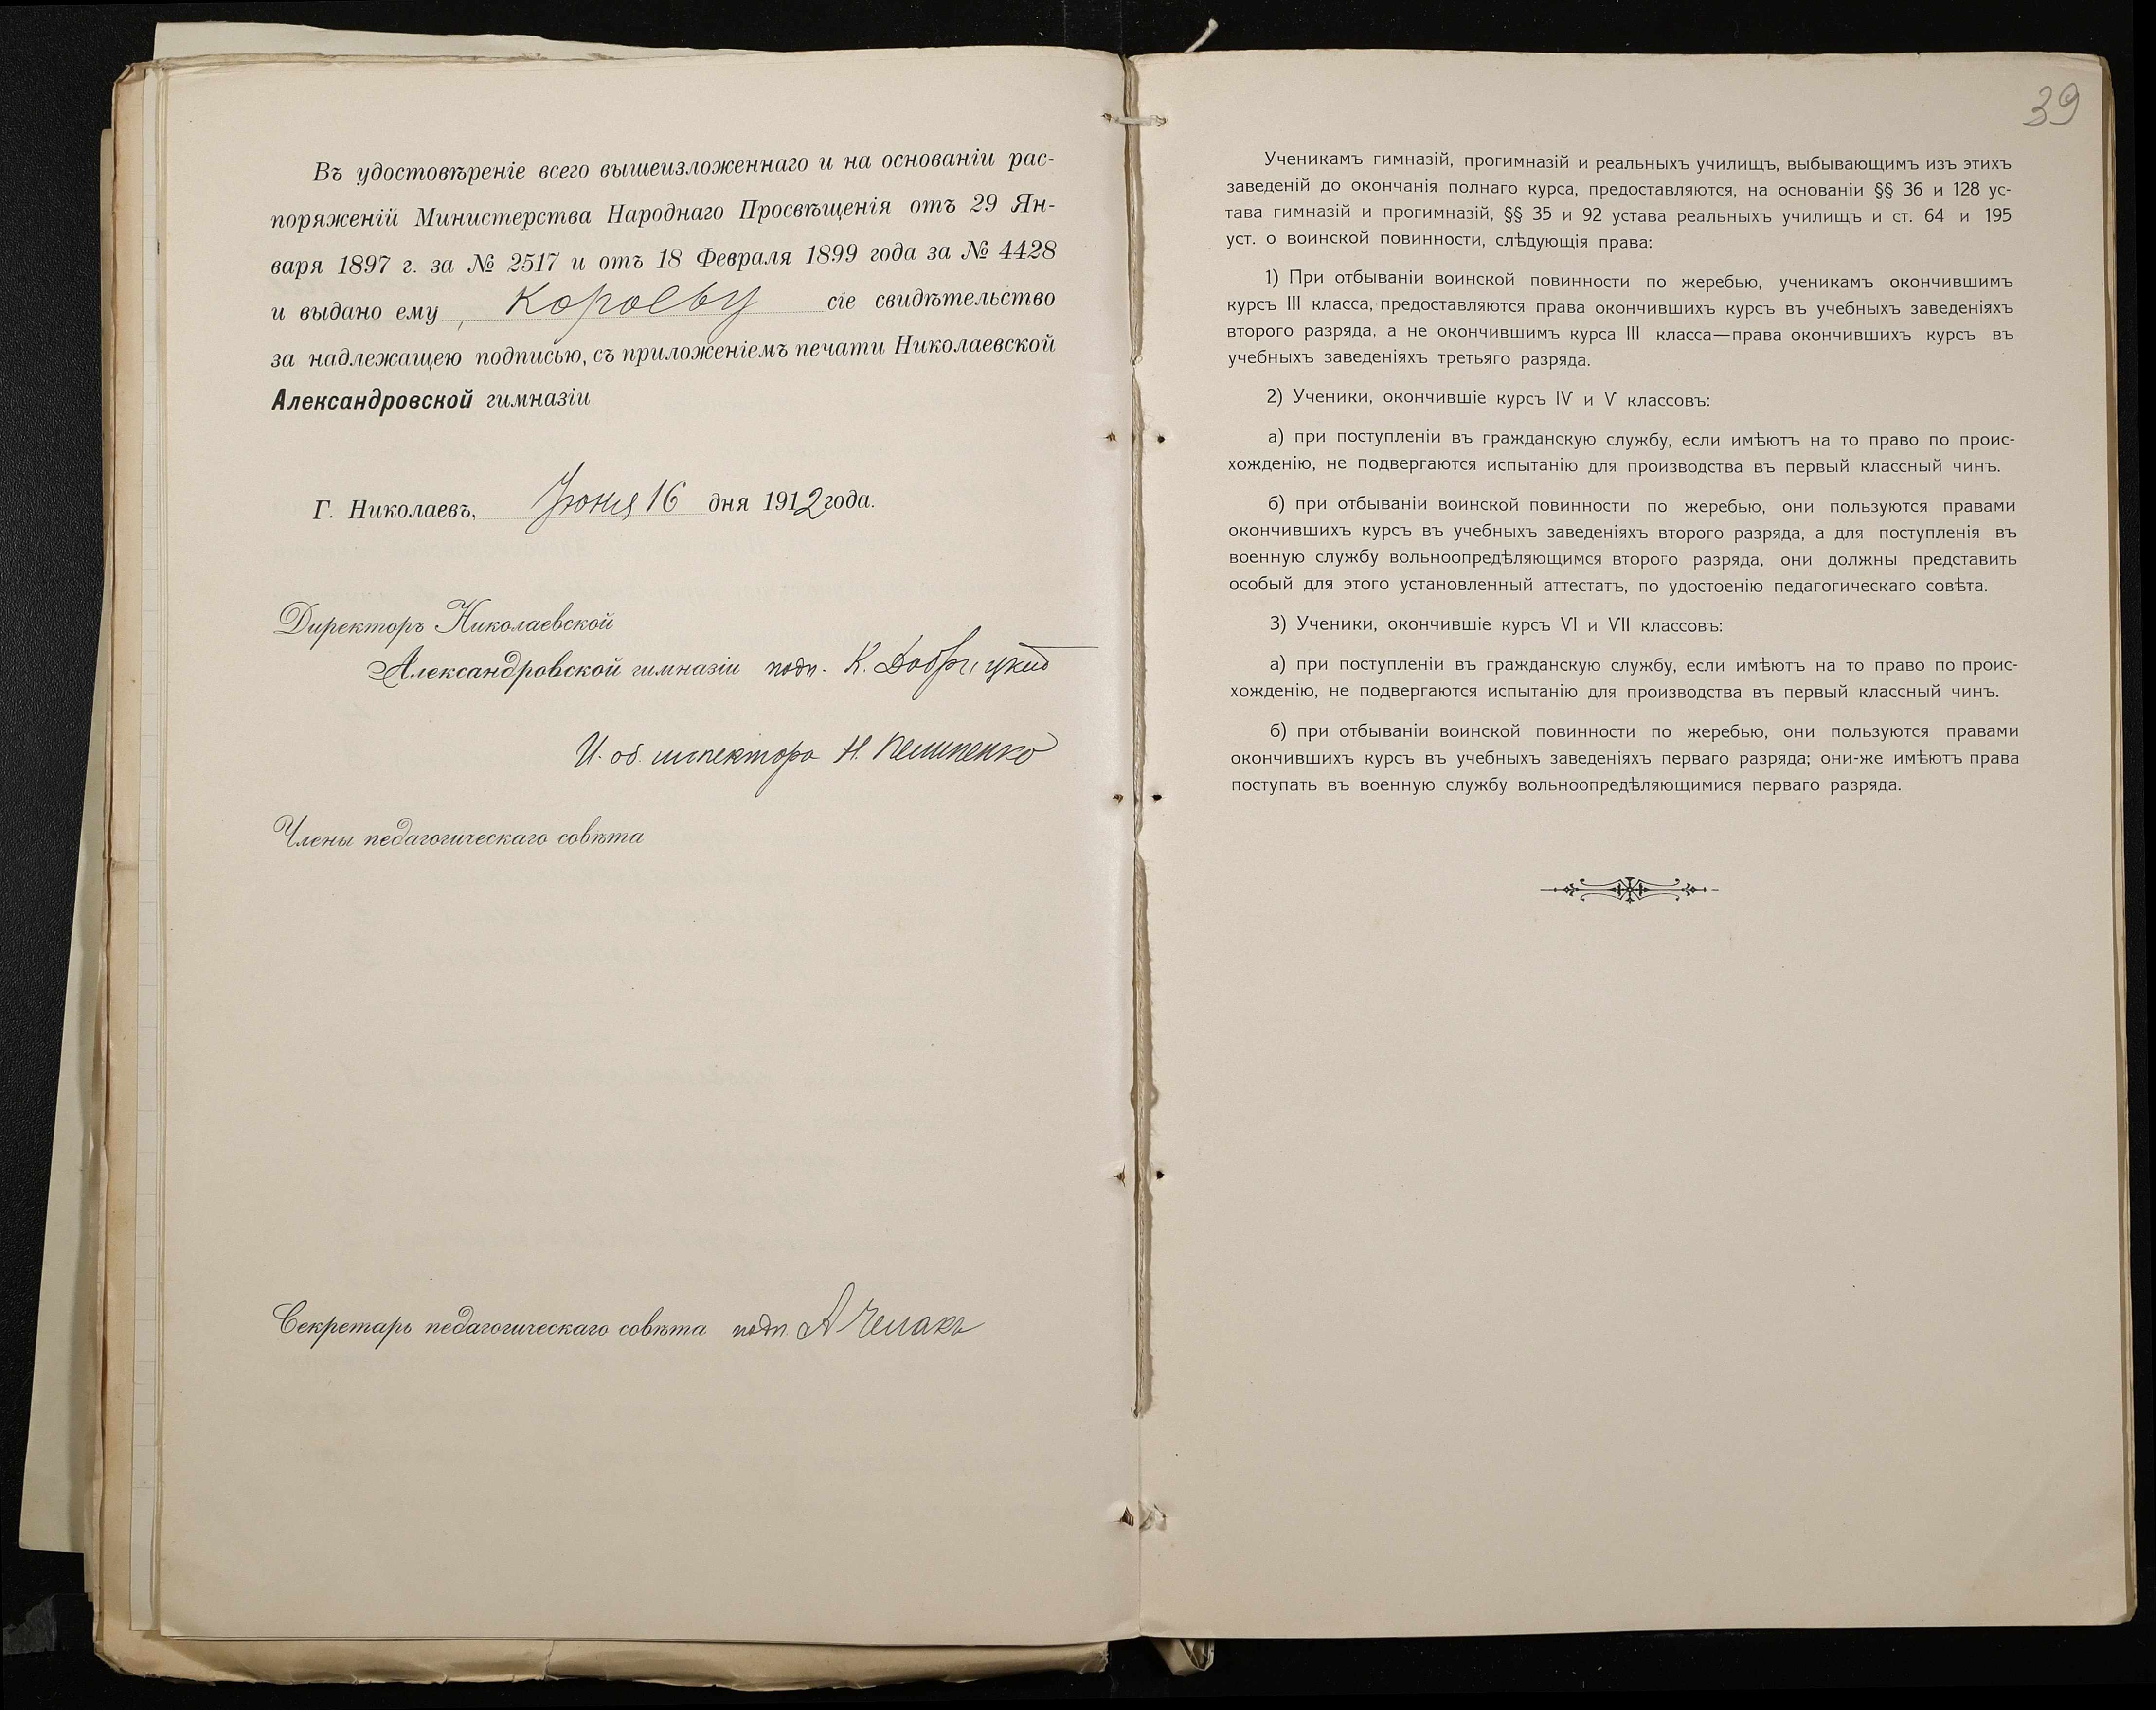 Въ удостовѣреніе всего вышеизложеннаго и на основаніи рас-
поряженій Министерства Народнаго Просвѣщенія отъ 29 Ян-
варя 1897 г. за № 2517 и отъ 18 Февраля 1899 года за № 4428
и выдано ему, сіе свидѣтельство
за надлежащею подписью, съ приложеніемъ печати Николаевской
Александровской гимназіи
Г. Николаевъ, Іюня 16 дня 1912 года.
Директоръ Николаевской
Александровской гимназіи подп. К.
И. об. инспектора Н.
Члены педагогическаго совѣта
Секретарь педагогическаго совѣта подп. А
39
Ученикамъ гимназій, прогимназій и реальныхъ училищъ, выбывающимъ изъ этихъ
заведеній до окончанія полнаго курса, предоставляются, на основаніи §§ 36 и 128 ус-
тава гимназій и прогимназій, §§ 35 и 92 устава реальныхъ училищъ и ст. 64 и 195
уст. о воинской повинности, слѣдующія права:
1) При отбываніи воинской повинности по жеребью, ученикамъ окончившимъ
курсъ III класса, предоставляются права окончившихъ курсъ въ учебныхъ заведеніяхъ
второго разряда, а не окончившимъ курса III класса—права окончившихъ курсъ въ
учебныхъ заведеніяхъ третьяго разряда.
2) Ученики, окончившіе курсъ IV и V классовъ:
а) при поступленіи въ гражданскую службу, если имѣютъ на то право по проис-
хожденію, не подвергаются испытанію для производства въ первый классный чинъ.
б) при отбываніи воинской повинности по жеребью, они пользуются правами
окончившихъ курсъ въ учебныхъ заведеніяхъ второго разряда, а для поступленія въ
военную службу вольноопредѣляющимся второго разряда, они должны представить
особый для этого установленный аттестатъ, по удостоенію педагогическаго совѣта.
3) Ученики, окончившіе курсъ VI и VII классовъ:
а) при поступленіи въ гражданскую службу, если имѣютъ на то право по проис-
хожденію, не подвергаются испытанію для производства въ первый классный чинъ.
б) при отбываніи воинской повинности по жеребью, они пользуются правами
окончившихъ курсъ въ учебныхъ заведеніяхъ перваго разряда; они-же имѣютъ права
поступать въ военную службу вольноопредѣляющимися перваго разряда.